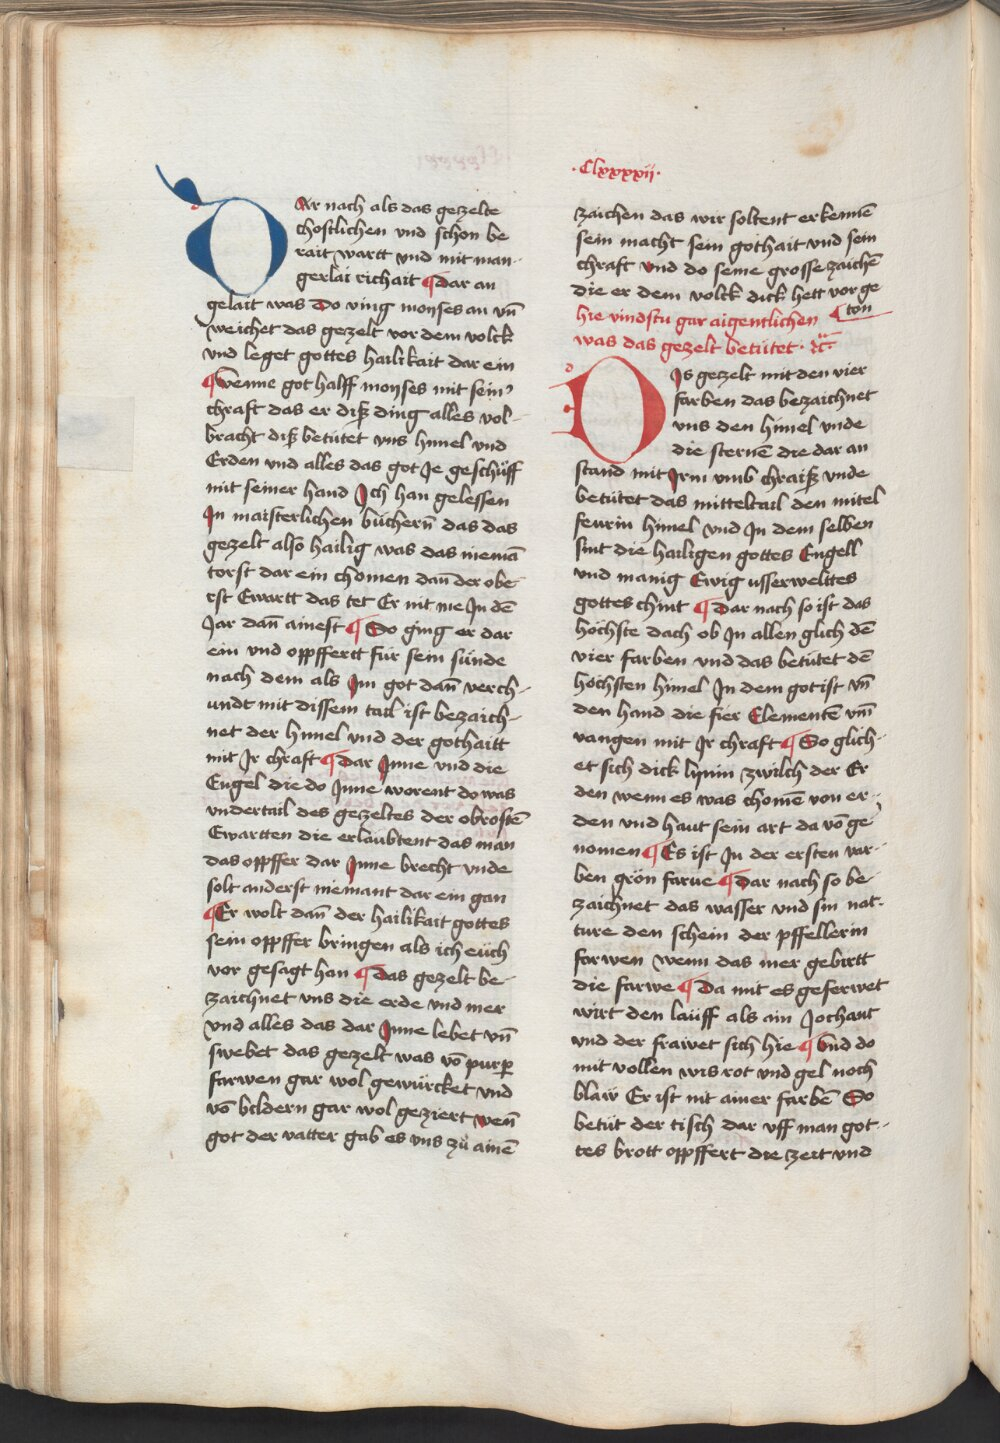 ·Clxxxxii·
DAr nach als das gezelte
chostlichen und schon be
rait wartt und mit man-
gerlai richait ¶ dar an
gelait was Do ving monses an un̄
weichet das gezelt vor dem volck
und leget gottes hailikait dar ein
¶ wenne got halff monses mit sein’
chraft das er diß ding alles vol-
bracht diß betútet uns himel und
Erden und alles das got Je geschúff
mit seiner hand Ich han gelessen
In maisterlichen búchern̄ das das
gezelt also hailig was das niemā
torst dar ein chomen dan̄ der obe-
rst Ewartt das tet Er nit me In dē
Jar dan̄ ainest ¶ So ging er dar
ein und oppffertt fúr sein súnde
nach dem als Im got dan̄ verch-
undt mit dissem tail ist bezaich-
net der himel und der gothaitt
mit Jr chraft ¶ Dar Inne und die
Engel die do Inne worent do was
undertail des gezeltes der obrostē
Ewartten die erlaubtent das man
das oppffer dar Inne brecht unde
solt anderst niemant dar ein gan
¶ Er wolt dan̄ der hailikait gottes
sein oppffer bringen als ich eúch
vor gesagt han ¶ Das gezelt be-
zaichnet uns die erde und mer
und alles das dar Inne lebet un̄
swebet das gezelt was vō purp̄
farwen gar wol gewúrcket und
vō bildern gar wol geziert wen̄
got der vatter gab es uns zú ainē
zaichen das wir soltent erkennē
sein macht sein gothait und sein
chraft und do seine grosse zaichē
die er dem volck dick hett vor ge
¶ ton
hie vindstu gar aigentlichen
was das gezelt betútet· etc.
DIs gezelt mit den vier
farben das bezaichnet
uns den himel unde
die sternē die dar an
stand mit Irm umb chraiß unde
betútet das mitteltail den mitel
feurin himel und In dem selben
sint die hailigen gottes Engell
und manig Ewig usserweltes
gottes chint ¶ Dar nach so ist das
höchste dach ob In allen glich dē
vier farben und das betútet dē
höchsten himel In dem got ist un̄
den hand die fier Elementē um̄
vangen mit Jr chraft ¶ So glich-
et sich dick lynin zwilch der Er
den wenn es was chomē von er-
den und haut sein art da vō ge
nomen ¶ Es ist In der ersten var-
ben grön farue ¶ Dar nach so be-
zaichnet das wasser und sin nat-
ture den schein der pffellerin
farwen wenn das mer gebirtt
die farwe ¶ Da mit es geferwet
wirt den lauff als ain Jochant
und der frawet sich hie ¶ Und do
mit vollen wis rot und gel noch
blaw Er ist nit ainer farbē So
betút der tisch dar uff man got-
tes brott oppffert die zeit und